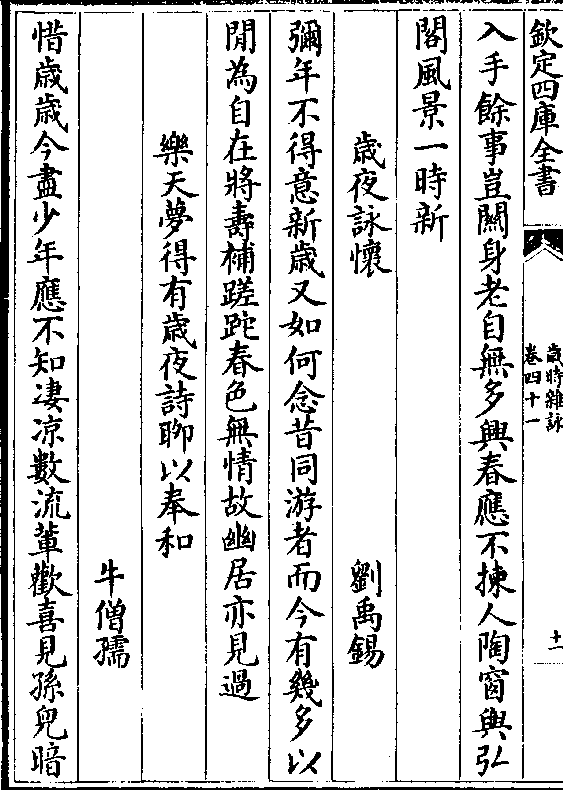 欽定四庫全書
歲時雜詠
卷四十一
十一
入手餘事豈關身老自無多興春應不揀人陶窗與弘
閤風景一時新
歲夜詠懷
劉禹錫
彌年不得意新歲又如何念昔同游者而今有幾多以
閒為自在將壽補蹉跎春色無情故幽居亦見過
樂天夢得有歲夜詩聊以奉和
牛僧孺
惜歲歲今盡少年應不知凄凉數流軰歡喜見孫兒暗